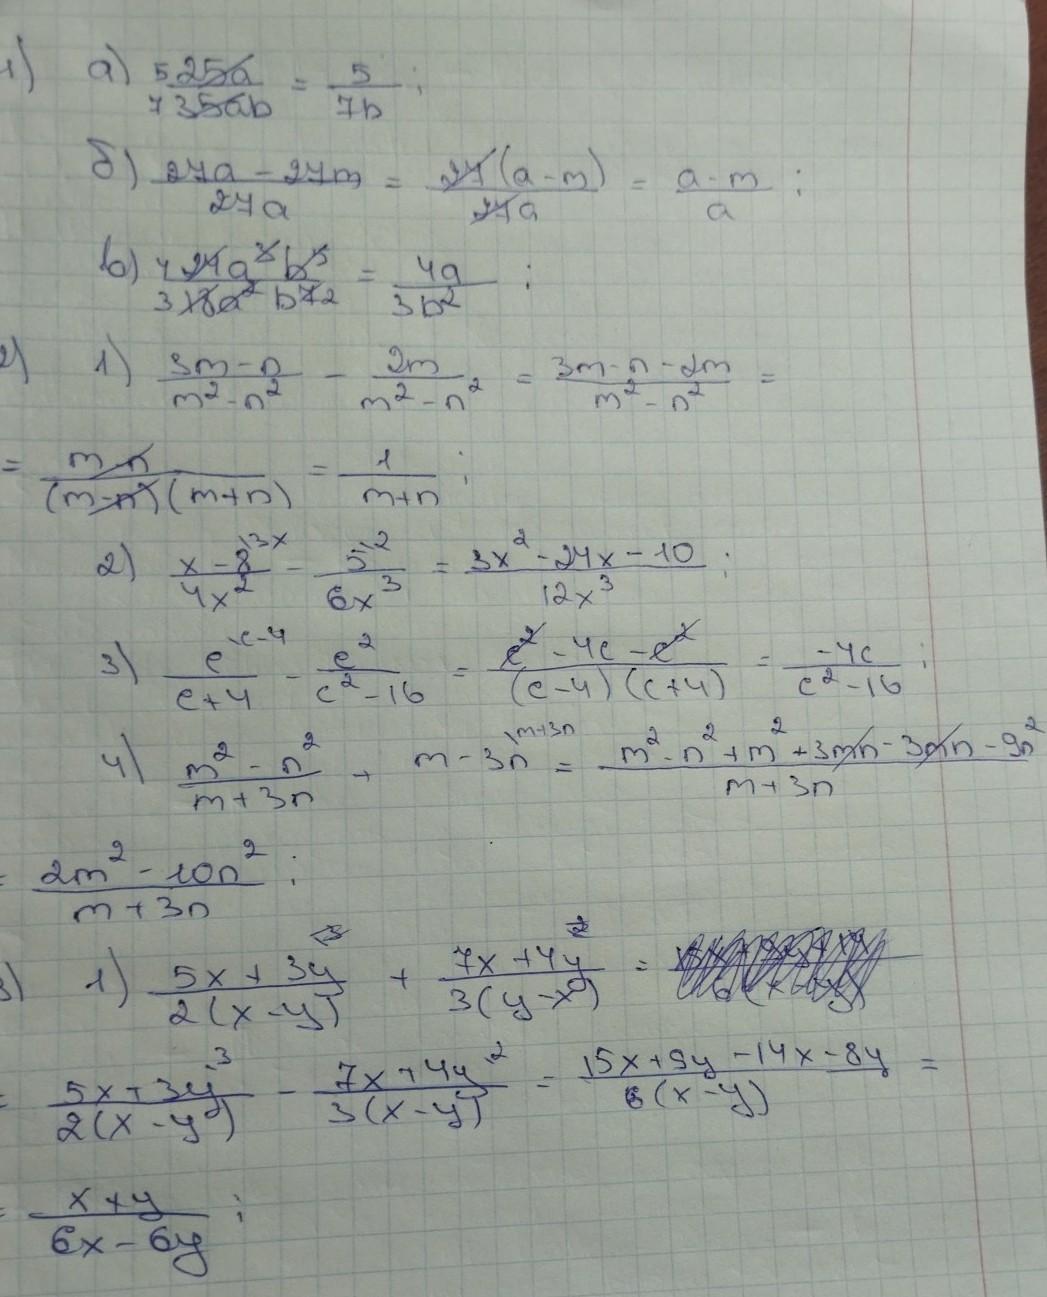 1) а) 5 25a / 7 35ab = 5 / 7b ;
б) 27a - 27m / 27a = 27(a - m) / 27a = a - m / a ;
в) 4 24a³b⁵ / 3 18a² b⁷ 2 = 4a / 3b² ;
2) 1) 3m - n / m² - n² - 2m / m² - n² = 3m - n - 2m / m² - n² =
= m - n / (m - n)(m + n) = 1 / m + n ;
2) x - 8 \3x / 4x² - 5 \2 / 6x³ = 3x² - 24x - 10 / 12x³ ;
3) c \c-4 / c + 4 - c² / c² - 16 = c² - 4c - c² / (c - 4)(c + 4) = -4c / c² - 16 ;
4) m² - n² / m + 3n + m - 3n \m+3n = m² - n² + m² + 3mn - 3mn - 9n² / m + 3n
= 2m² - 10n² / m + 3n ;
3) 1) 5x + 3y / 2(x - y) + 7x + 4y / 3(y - x) =
= 5x + 3y \3 / 2(x - y) - 7x + 4y \2 / 3(x - y) = 15x + 9y - 14x - 8y / 6(x - y) =
= x + y / 6x - 6y ;